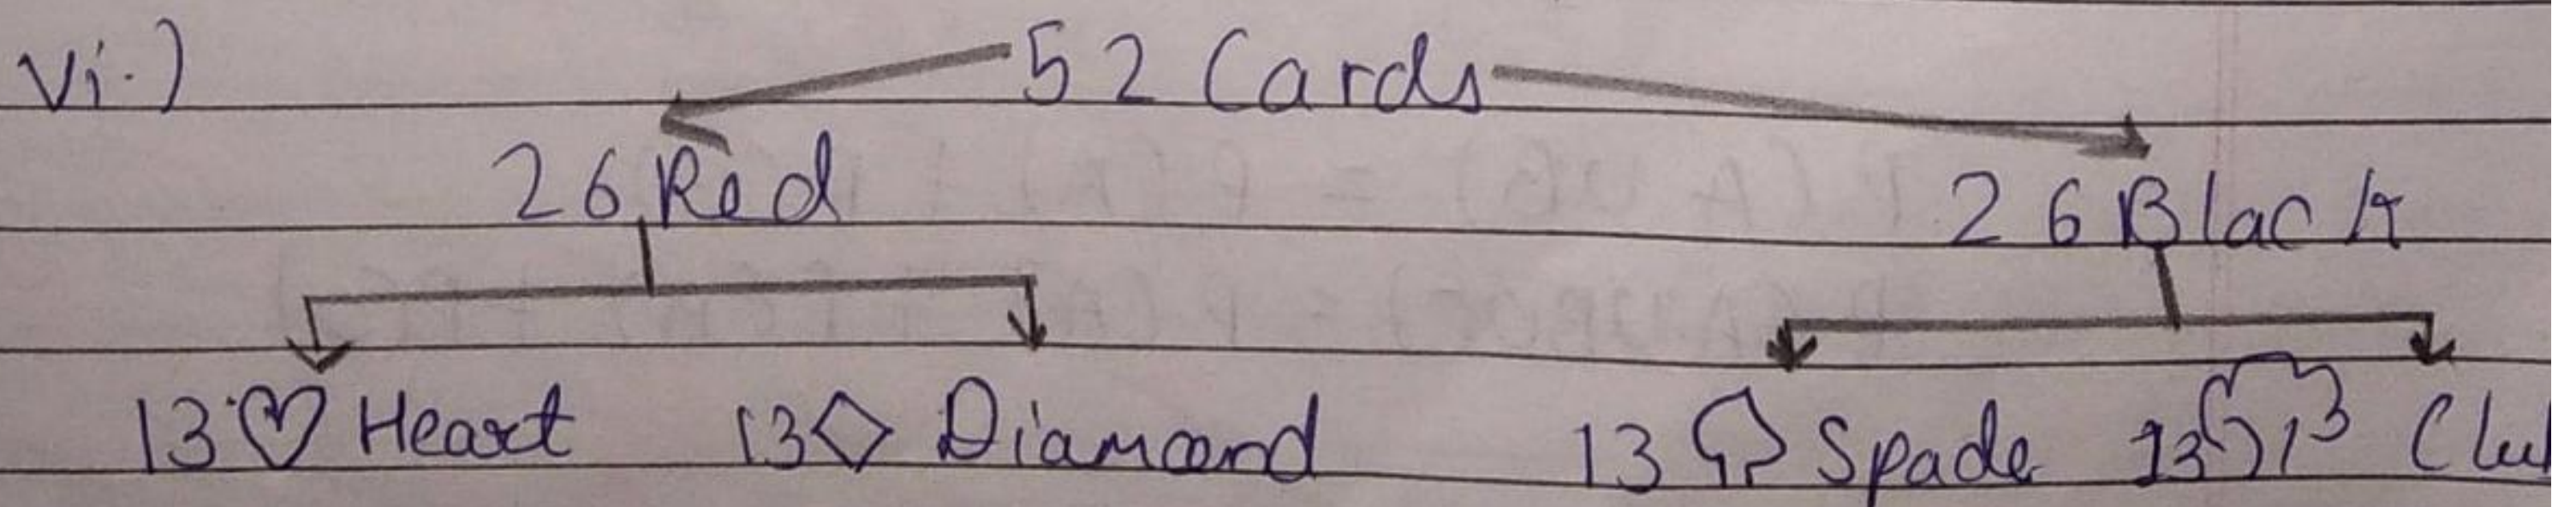 vi.) 52 Cards
26 Red 26 Black
13 ♡ Heart 13 ◇ Diamond 13 ♤ Spade 13 ♧ Clu